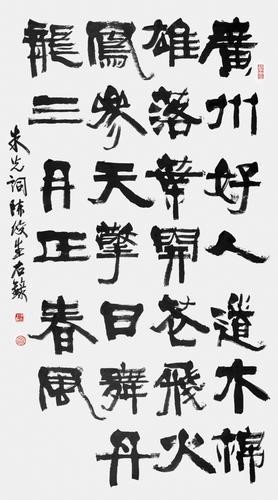 廣州好人道木棉
雄落葉開花飛火
鳳參天擎日舞丹
龍三月正春風
朱光詞陈俊生